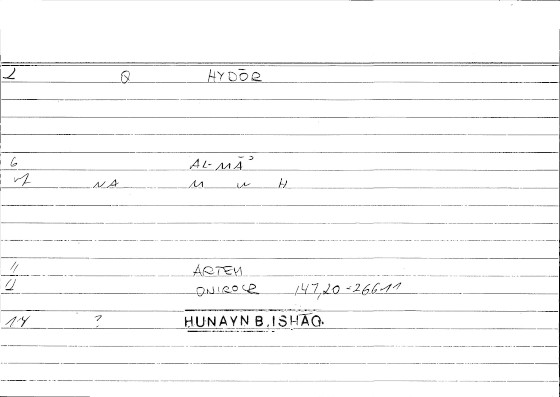 2 Q HYDŌR
6 AL-MĀʾ
NA M W H
11 ARTEM
ONIROCR 147,20-266,11
14 ? HUNAYN B. ISHĀQ.